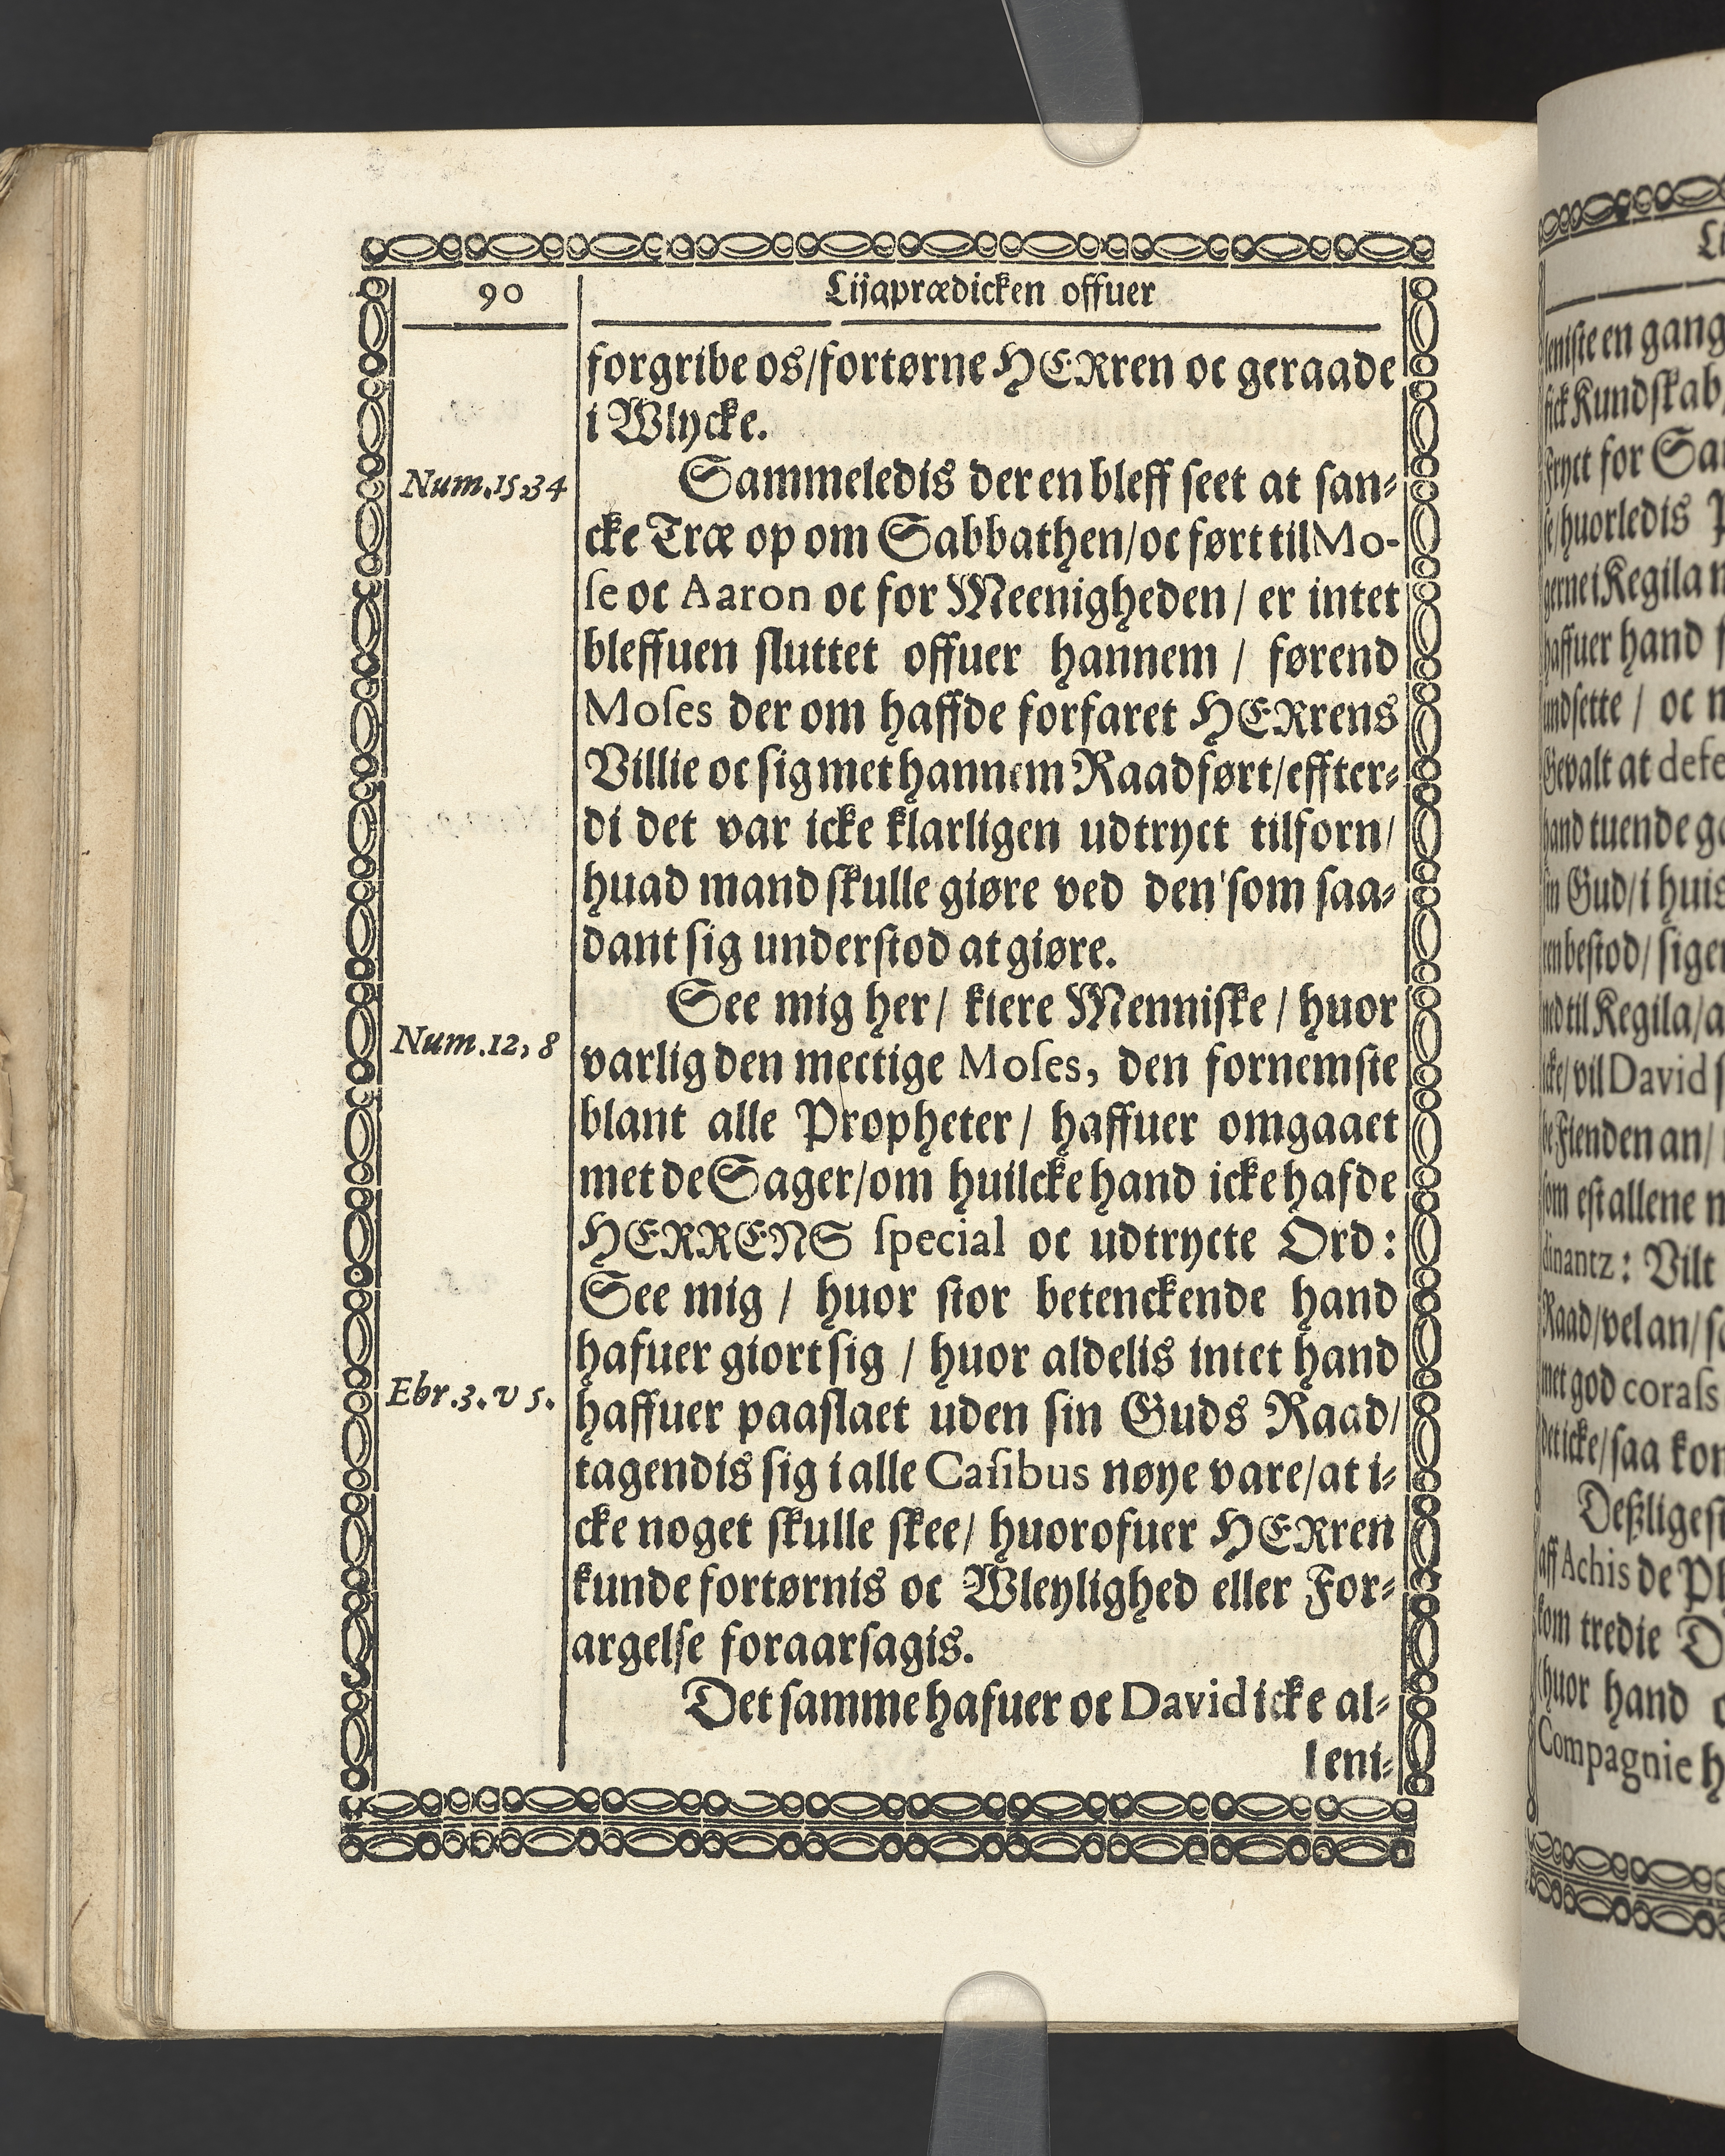 90
Lijgprædicken offuer
forgribe os/fortørne HERren oc geraade
i Wlycke.
Num.15.34
Sammeledis der en bleff seet at san-
cke Træ op om Sabbathen/oc ført til Mo-
se oc Aaron oc for Meenigheden / er intet
bleffuen sluttet offuer hannem / førend
Moses der om haffde forfaret HERrens
Villie oc sig met hannem Raadført/effter-
di det var icke klarligen udtryct tilforn/
huad mand skulle giøre ved den som saa-
dant sig understod at giøre.
See mig her/ kiere Menniske / huor
Num.12, 8
varlig den mectige Moses, den fornemste
blant alle Propheter/ haffuer omgaaet
met de Sager/om huilcke hand icke hafde
HERRENS special oc udtrycte Ord:
See mig / huor stor betenckende hand
hafuer giort sig / huor aldelis intet hand
Ebr.3.v 5.
haffuer paaslaet uden sin Guds Raad/
tagendis sig i alle Casibus nøye vare/at i-
cke noget skulle skee/ huorofuer HERren
kunde fortørnis oc Wleylighed eller For-
argelse foraarsagis.
Det samme hafuer oc David icke al-
leni-
leniste en gang
fick Kundskab
Fryct for
se/huorledis
gerne i Kegila
haffuer hand
undsette / oc
Gevalt at
hand tuende
sin Gud/i huis
bestod/
ned til Kegila/
icke/vil David
Fienden an/
som est allene
dinantz: Vilt
Raad/vel an/
met god corass
det icke/saa
Deßligest
aff Achis de
som tredie
huor hand
Compagnie